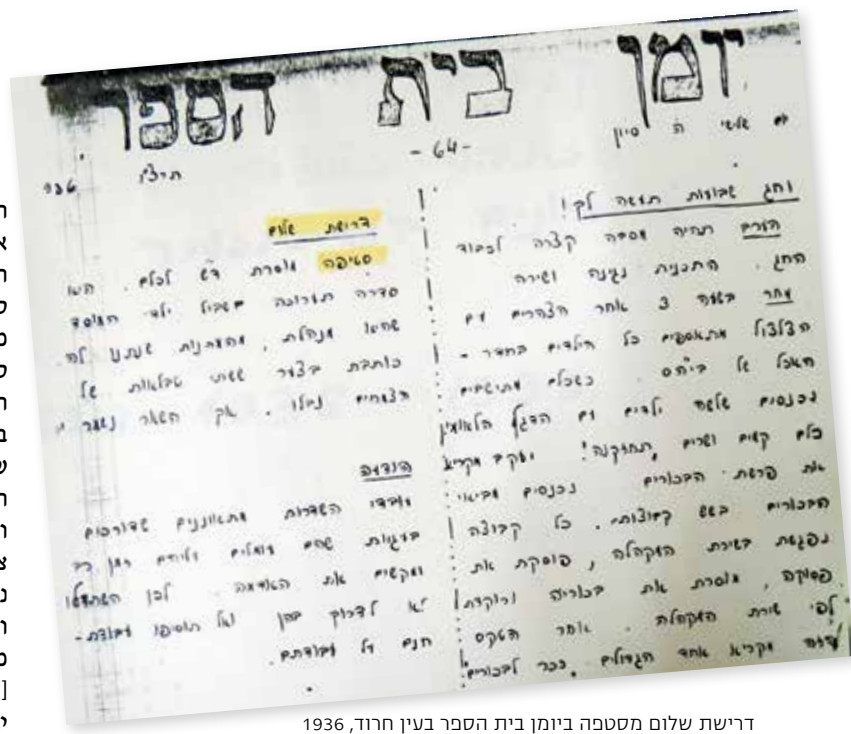 יומן בית הספר
- 64 -
יום שלישי ה' סיון תרצ"ו 936
וחג שבועות תעשה לך!
הערב תהיה מסבה קצרה לכבוד
החג. התכנית נגינה ושירה
מחר בשעה 3 אחר הצהרים עם
הצלצול מתאספים כל הילדים בחדר-
האכל של ביה"ס. כשכלם מתישבים
נכנסים שלשה ילדים עם הדגל הלאומי
כלם קמים ושרים "תחזקנה"! יעקב מקריא
את פרשת הבכורים. נכנסים מביאי
הבכורים בשש קבוצות. כל קבוצה
נפגשת בשירת המקהלה, פוסקת את
פסוקה, מוסרת את בכוריה ורוקדת
לפי שירת המקהלה. אחר הטקס
מקריא אחד הגדולים
דרישת שלום
סטיפה מוסרת דש לכלם. היא
סדרה תערוכה בשביל ילדי המוסד
שהיא מנהלת, מהמתנות שנתנו לה.
כותבת בצער ששתי טבלאות של
הצמחים נבלו. אך השאר נשאר
הודעה
עובדי השדרות מתאוננים שדורכים
בערוגות שהם עומלים עליהם זמן רב
ומקשים את האדמה. לכן השתדלו
לא לדרוך בהן ואל תוסיפו עבודת-
חנם על עבודתם.
דרישת שלום מסטפה ביומן בית הספר בעין חרוד, 1936